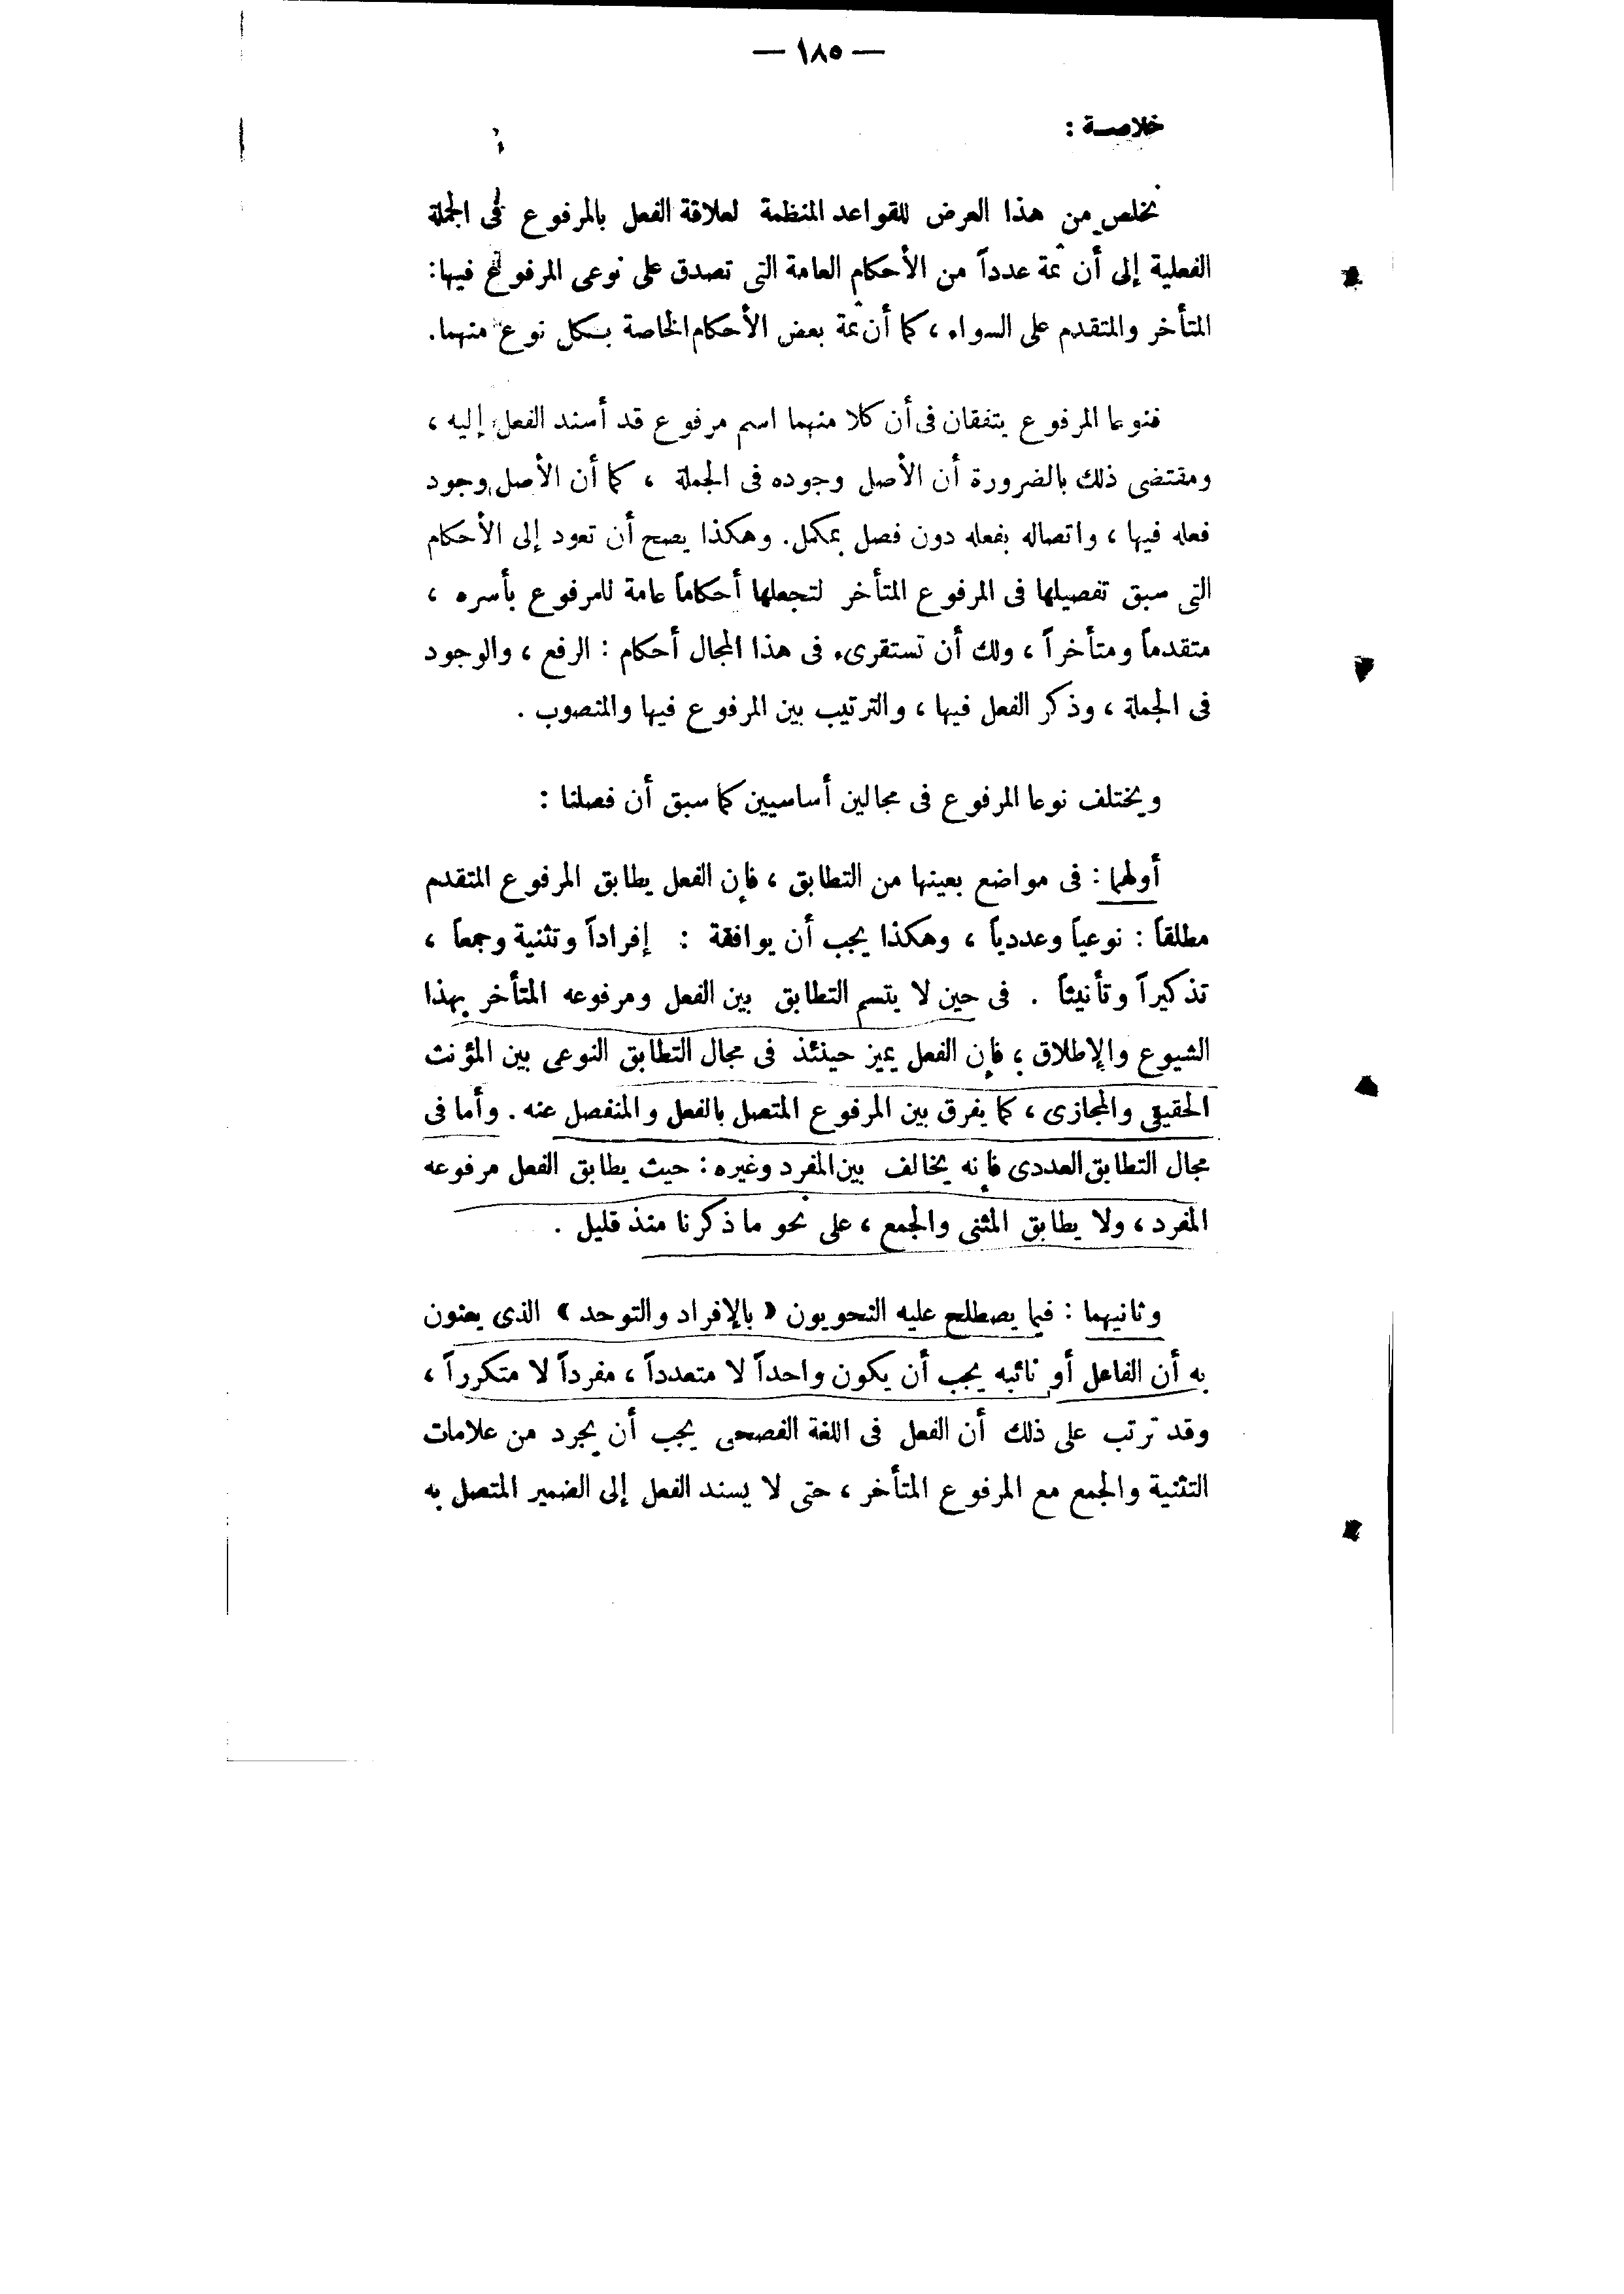 — ١٨٥ —
خلاصة :
نخلص من هذا العرض للقواعد المنظمة لعلاقة الفعل بالمرفوع فى الجملة
الفعلية إلى أن ثمة عدداً من الأحكام العامة التى تصدق على نوعى المرفوع فيها:
المتأخر والمتقدم على السواء ، كما أن ثمة بعض الأحكام الخاصة بكل نوع منهما.
فنوعا المرفوع يتفقان فى أن كلا منهما اسم مرفوع قد أسند الفعل إليه ،
ومقتضى ذلك بالضرورة أن الأصل وجوده فى الجملة ، كما أن الأصل وجود
فعله فيها ، واتصاله بفعله دون فصل بمكمل. وهكذا يصح أن تعود إلى الأحكام
التى سبق تفصيلها فى المرفوع المتأخر لتجعلها أحكاماً عامة للمرفوع بأسره ،
متقدماً ومتأخراً ، ولك أن تستقرىء فى هذا المجال أحكام : الرفع ، والوجود
فى الجملة ، وذكر الفعل فيها ، والترتيب بين المرفوع فيها والمنصوب .
ويختلف نوعا المرفوع فى مجالين أساسيين كما سبق أن فصلنا :
أولهما : فى مواضع بعينها من التطابق ، فإن الفعل يطابق المرفوع المتقدم
مطلقاً : نوعياً وعددياً ، وهكذا يجب أن يوافقة : إفراداً وتثنية وجمعاً ،
تذكيراً وتأنيثاً . فى حين لا يتسم التطابق بين الفعل ومرفوعه المتأخر بهذا
الشيوع والإطلاق ؛ فإن الفعل يميز حينئذ فى مجال التطابق النوعى بين المؤنث
الحقيقى والمجازى ، كما يفرق بين المرفوع المتصل بالفعل والمنفصل عنه . وأما فى
مجال التطابق العددى فإنه يخالف بين المفرد وغيره : حيث يطابق الفعل مرفوعه
المفرد ، ولا يطابق المثنى والجمع ، على نحو ما ذكرنا منذ قليل .
وثانيهما : فيما يصطلح عليه النحويون « بالإفراد والتوحد » الذى يعنون
به أن الفاعل أو نائبه يجب أن يكون واحداً لا متعدداً ، مفرداً لا متكرراً ،
وقد ترتب على ذلك أن الفعل فى اللغة الفصحى يجب أن يجرد من علامات
التثنية والجمع مع المرفوع المتأخر ، حتى لا يسند الفعل إلى الضمير المتصل به